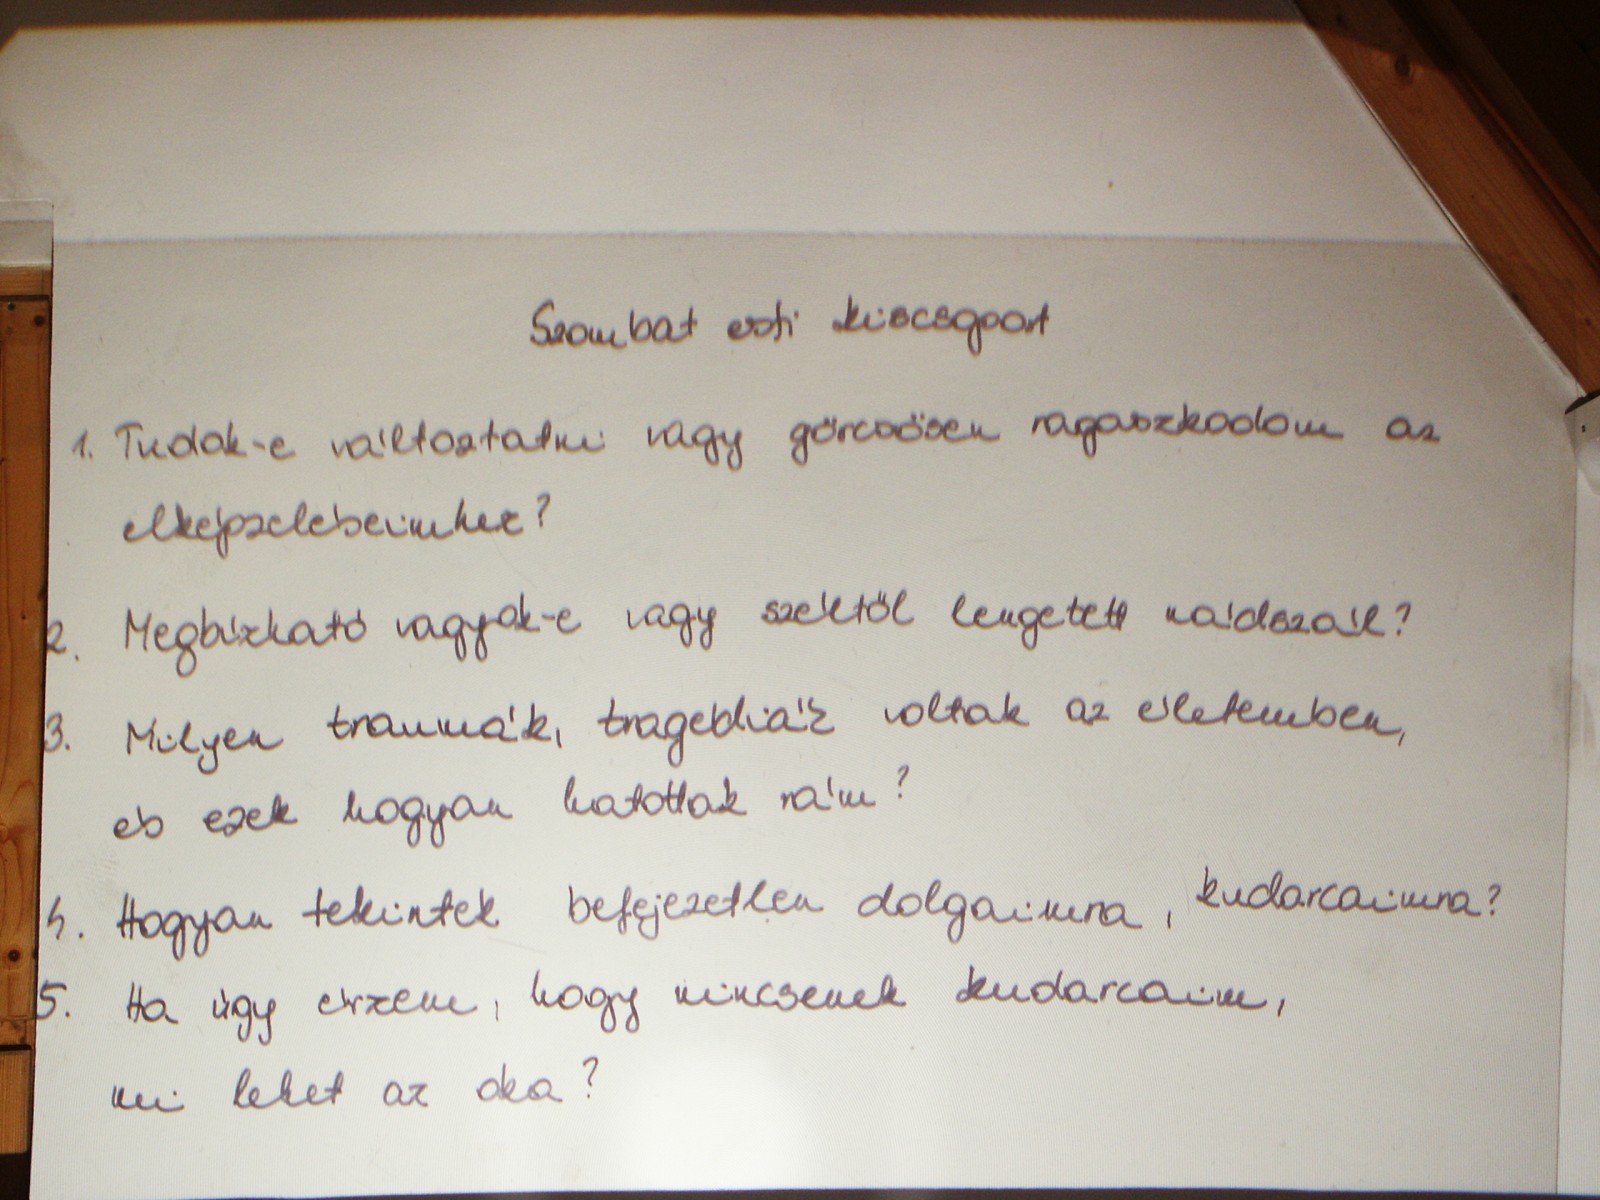 Szombat esti kiscsoport
1. Tudok-e változtatni vagy görcsösen ragaszkodom az
elképzeléseimhez?
2. Megbízható vagyok-e vagy széltől lengetett nádszál?
3. Milyen traumák, tragédiák voltak az életemben,
és ezek hogyan hatottak rám?
4. Hogyan tekintek befejezetlen dolgaimra, kudarcaimra?
5. Ha úgy érzem, hogy nincsenek kudarcaim,
mi lehet az oka?